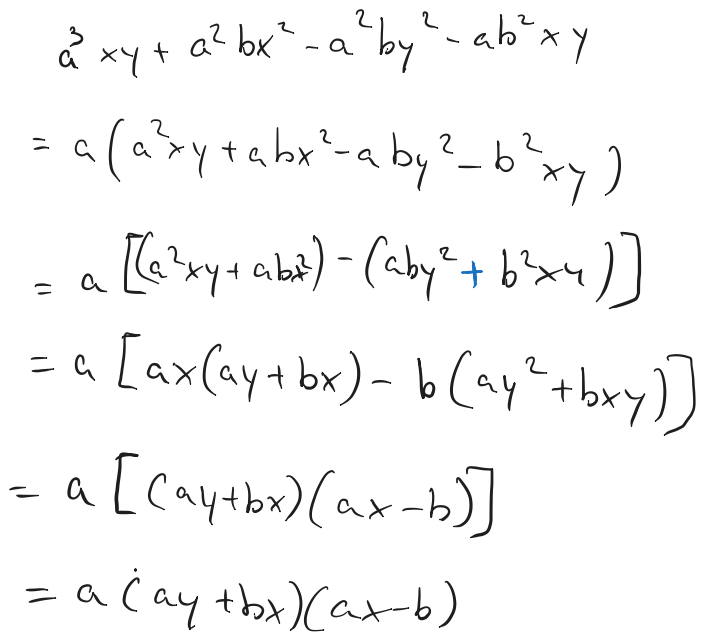 a³xy + a²bx² - a²by² - ab²xy
= a(a²xy + abx² - aby² - b²xy)
= a[(a²xy + abx²) - (aby² + b²xy)]
= a[ax(ay + bx) - b(ay² + bxy)]
= a[(ay+bx)(ax-b)]
= a(ay+bx)(ax-b)